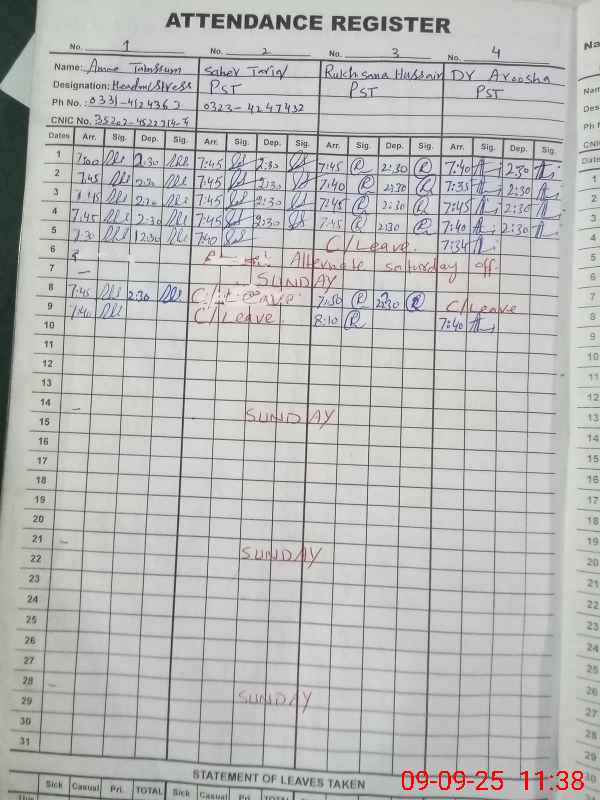 ATTENDANCE REGISTER
No. 1 No. 2 No. 3 No. 4
Name: Amna Tabassum Saher Tariq Rukhsana Hussain Dr Aroosha
Designation: Headmistress PST PST PST
Ph No.: 0323-4247432
CNIC No.
Dates Arr. Sig. Dep. Sig. Arr. Sig. Dep. Sig. Arr. Sig. Dep. Sig. Arr. Sig. Dep. Sig.
1 7:00 2:30 7:45 2:30 7:45 2:30 7:40 2:30
2 7:45 2:30 7:45 2:30 7:40 2:30 7:35 2:30
3 7:45 2:30 7:45 2:30 7:45 2:30 7:45 2:30
4 7:45 2:30 7:45 2:30 7:45 2:30 7:40 2:30
5 7:30 12:30 7:40 C/Leave. 7:34
6 Alternate saturday off
7 SUNDAY
8 7:45 2:30 7:50 2:30 C/Leave
9 7:40 C/Leave 8:10 7:40
10
11
12
13
14 SUNDAY
15
16
17
18
19
20
21 SUNDAY
22
23
24
25
26
27
28 SUNDAY
29
30
31
STATEMENT OF LEAVES TAKEN
Sick Casual Pri. TOTAL Sick Casual Pri. TOTAL
09-09-25 11:38